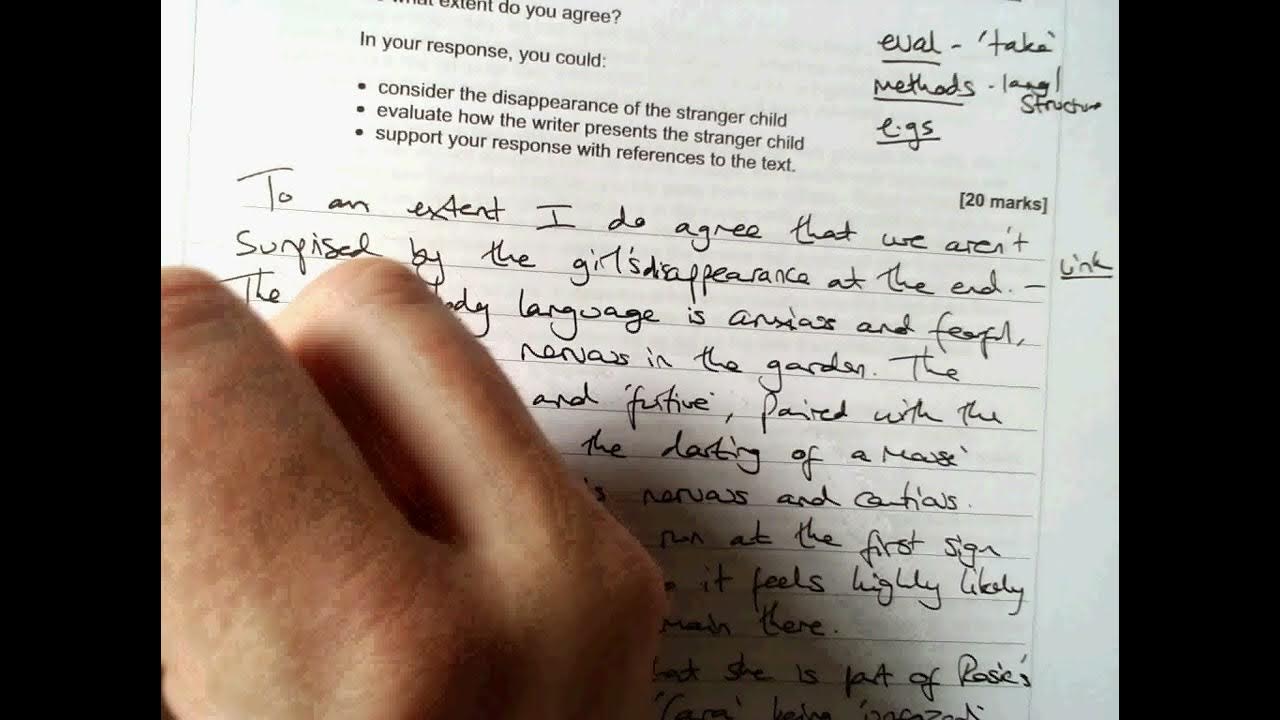 what extent do you agree?
In your response, you could:
• consider the disappearance of the stranger child
• evaluate how the writer presents the stranger child
• support your response with references to the text.
[20 marks]
eval - 'take'
methods - lang/
structure
e.gs
To an extent I do agree that we aren't
surpised by the girl's disappearance at the end. -
Link
The body language is anxious and fearful,
nervous in the garden. The
and 'furtive', paired with the
the darting of a mouse'
is nervous and cautious.
run at the first sign
it feels highly likely
there.
that she is part of Rosie's
'Cara' being